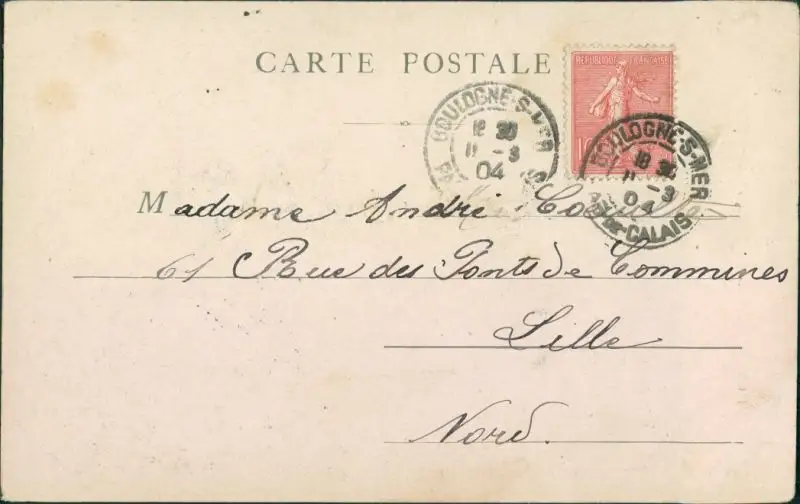 CARTE POSTALE
REPUBLIQUE FRANÇAISE
BOULOGNE-S-MER
18 30
11 - 3
04
BOULOGNE-S-MER
18 30
11 - 3
04
PAS-DE-CALAIS
Madame André
61 Rue des Ponts de Commines
Lille
Nord.